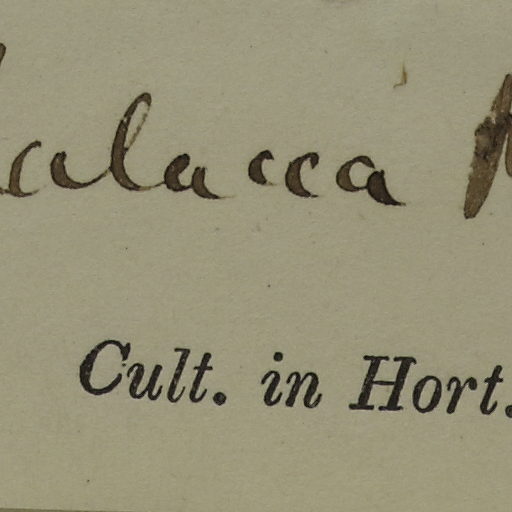 alacca
Cult. in Hort.